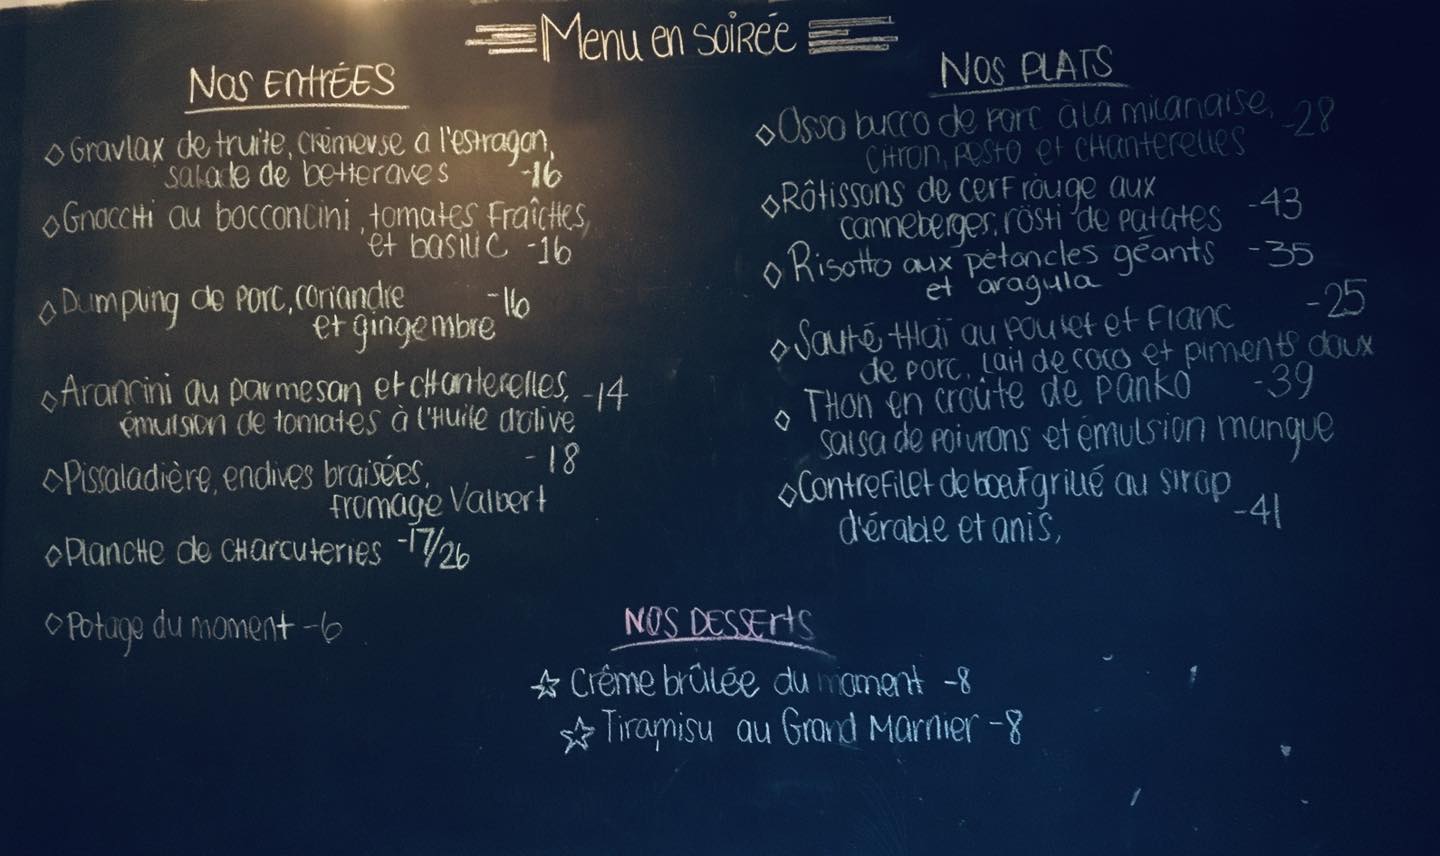 Menu en soirée
Nos ENtrÉES
Gravlax de truite, crèmeuse a l'estragon,
salade de betteraves -16
Gnocchi au bocconcini, tomates Fraîches,
et basilic -16
Dumpling de porc, coriandre -16
et gingembre
Arancini au parmesan et chanterelles, -14
émulsion de tomates à l'huile d'olive
Pissaladière, endives braisées, -18
fromage Valbert
Planche de charcuteries -17/26
Potage du moment -6
Nos PLATS
Osso bucco de porc à la milanaise, -28
citron, pesto et chanterelles
Rôtissons de cerf rouge aux -43
canneberger, rösti de patates
Risotto aux pétoncles géants -35
et aragula
Sauté thaï au poulet et Flanc -25
de porc, lait de coco et piments doux
Thon en croûte de panko -39
salsa de poivrons et émulsion mangue
Contrefilet de boeuf grillé au sirop -41
d'érable et anis,
NOS DESSErts
Crême brûlée du moment -8
Tiramisu au Grand Marnier -8